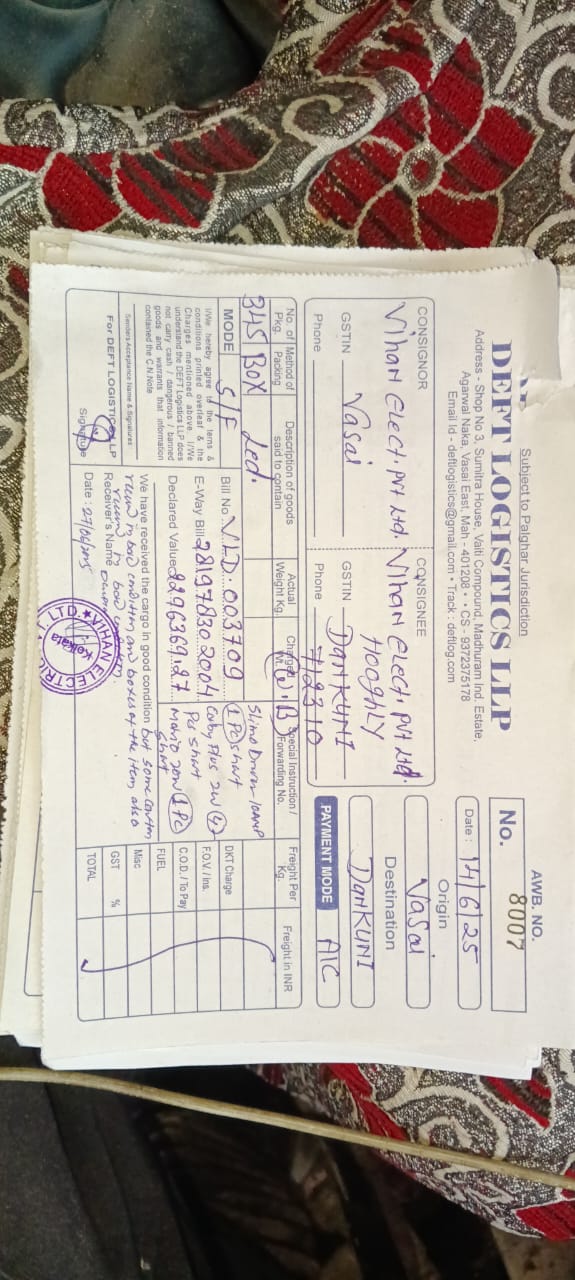 Subject to Palghar Jurisdiction
DEFT LOGISTICS LLP
Address - Shop No 3, Sumitra House, Vaiti Compound, Madhuram Ind. Estate,
Agarwal Naka, Vasai East, Mah - 401208 • • CS - 9372375178
Email Id - deftlogistics@gmail.com • Track : deftlog.com
AWB. NO.
No. 8007
Date : 14/6/25
CONSIGNOR
Vihan Elect. Pvt Ltd.
Vasai
GSTIN
Phone
CONSIGNEE
Vihan Elect. Pvt Ltd.
Hooghly
GSTIN DANKUNI
Phone 712310
Origin
Vasai
Destination
DANKUNI
PAYMENT MODE A/C
No. of Pkg.
Method of Packing
Description of goods said to contain
Actual Weight Kg.
Charge Wt.
Special Instruction / Forwarding No.
Freight Per Kg.
Freight in INR
345 Box Led.
MODE S/F
Bill No. VLD.003709
E-Way Bill 281978302004
Declared Value 2296369.27
1 Pc short
Pc short
short
DKT Charge
F.O.V / Ins.
C.O.D. / To Pay
FUEL
Misc
GST %
TOTAL
I/We hereby agree to the terms &
conditions printed overleaf & the
Charges mentioned above I/We
understand the DEFT Logistics LLP does
not carry cash / dangerous / banned
goods and warrants that information
contained the C.N.Note
Senders Acceptance Name & Signatures
For DEFT LOGISTICS LLP
Signature
We have received the cargo in good condition but some carton
recvd in bad condition and boxes of the item also
recvd in bad
Receiver's Name
Date : 27/06/2025
VIHAN ELECTRIC
LTD.
Kolkata